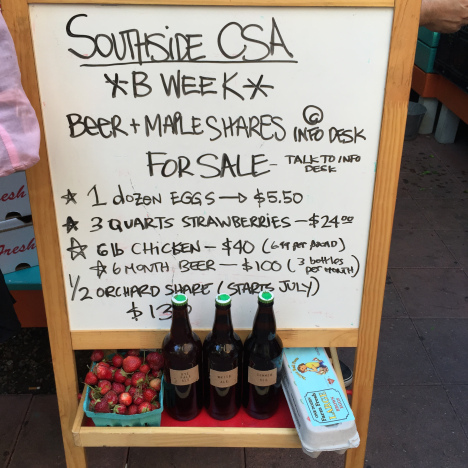 SOUTHSIDE CSA
*B WEEK*
BEER + MAPLE SHARES @ INFO DESK
FOR SALE - TALK TO INFO DESK
* 1 dozen EGGS → $5.50
* 3 QUARTS STRAWBERRIES - $24.00
* 6 lb CHICKEN - $40
* 6 MONTH BEER - $100 (3 bottles PER MONTH)
1/2 ORCHARD SHARE (STARTS JULY)
fresh
Fresh